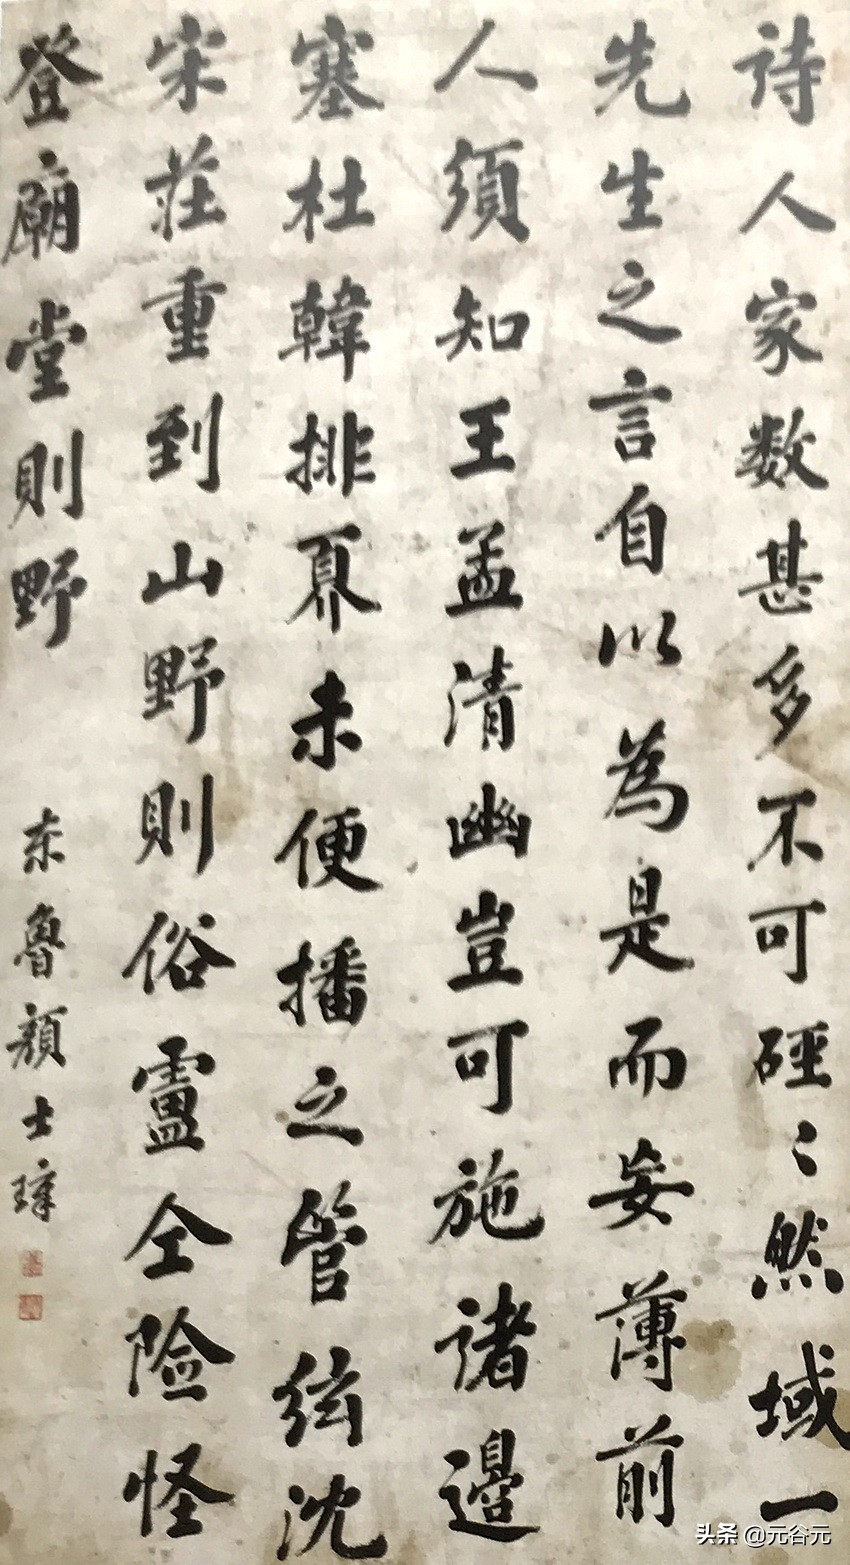 诗人家数甚多不可硜〻然域一
先生之言自以為是而妄薄前
人須知王孟清幽豈可施诸邊
塞杜韓排奡未便播之管絃沈
宋莊重到山野則俗盧仝险怪
登廟堂則野
东魯顏士璋
头条 @元谷元